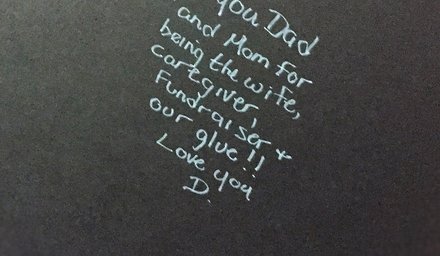 you Dad
and Mom for
being the wife,
caregiver,
Fundraiser +
our glue!!
Love you
D.